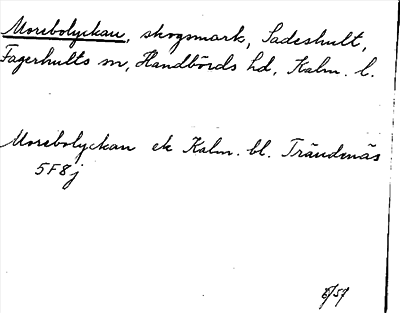 Morebolyckan, skogsmark, Sadeshult,
Fagerhults sn, Handbörds hd, Kalm. l.
Morebolyckan ek Kalm. bl. Trändenäs
5F8j
6/57